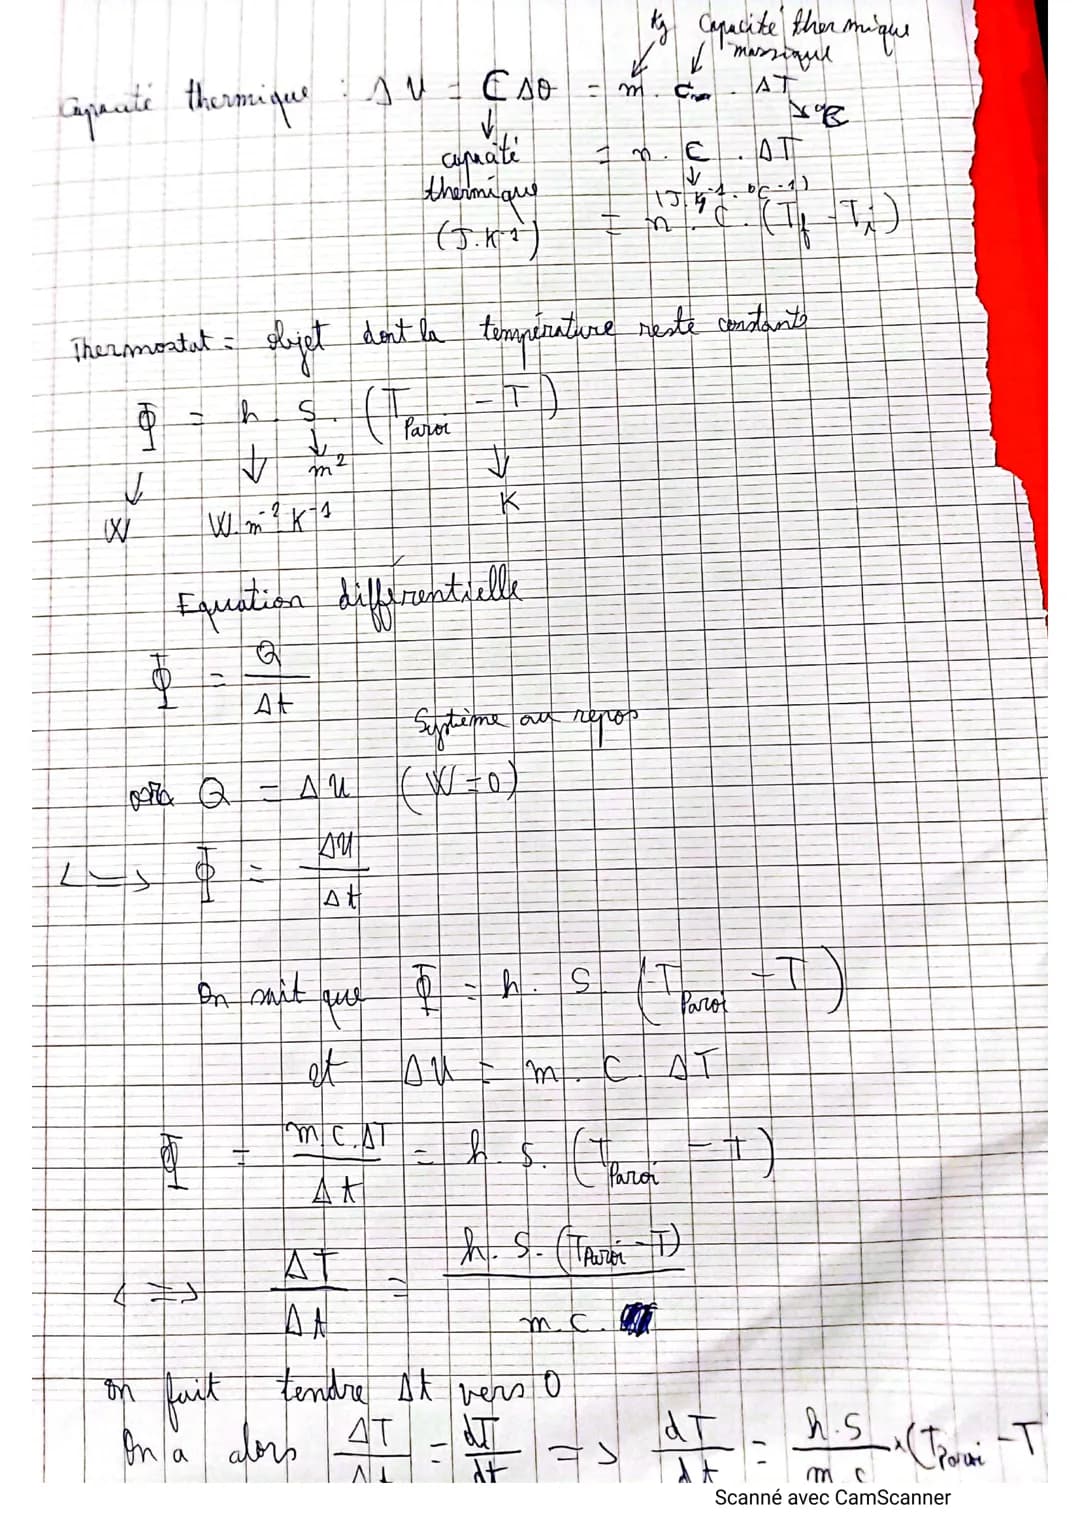 Kg Capacité thermique
massique
Capacité thermique : ΔU = C Δθ = m. cm. ΔT
°C
capacité = n. C. ΔT
thermique (J.kg-1.°C-1)
(J.K-1) = n. C. (Tf - Ti)
Thermostat = objet dont la température reste constante
Φ = h. S. (TParoi - T)
m²
W W.m-2 K-1 K
Equation différentielle
Φ = Q/Δt
Système au repos
Q = ΔU (W=0)
<=> Φ = ΔU/Δt
On sait que Φ = h. S. (TParoi - T)
et ΔU = m. C. ΔT
Φ = m.C.ΔT/Δt = h. S. (TParoi - T)
<=> ΔT/Δt = h. S. (TParoi - T)/m.C.
on fait tendre Δt vers 0
On a alors ΔT/Δt = dT/dt => dT/dt = h.S/m c x (TParoi - T
Scanné avec CamScanner